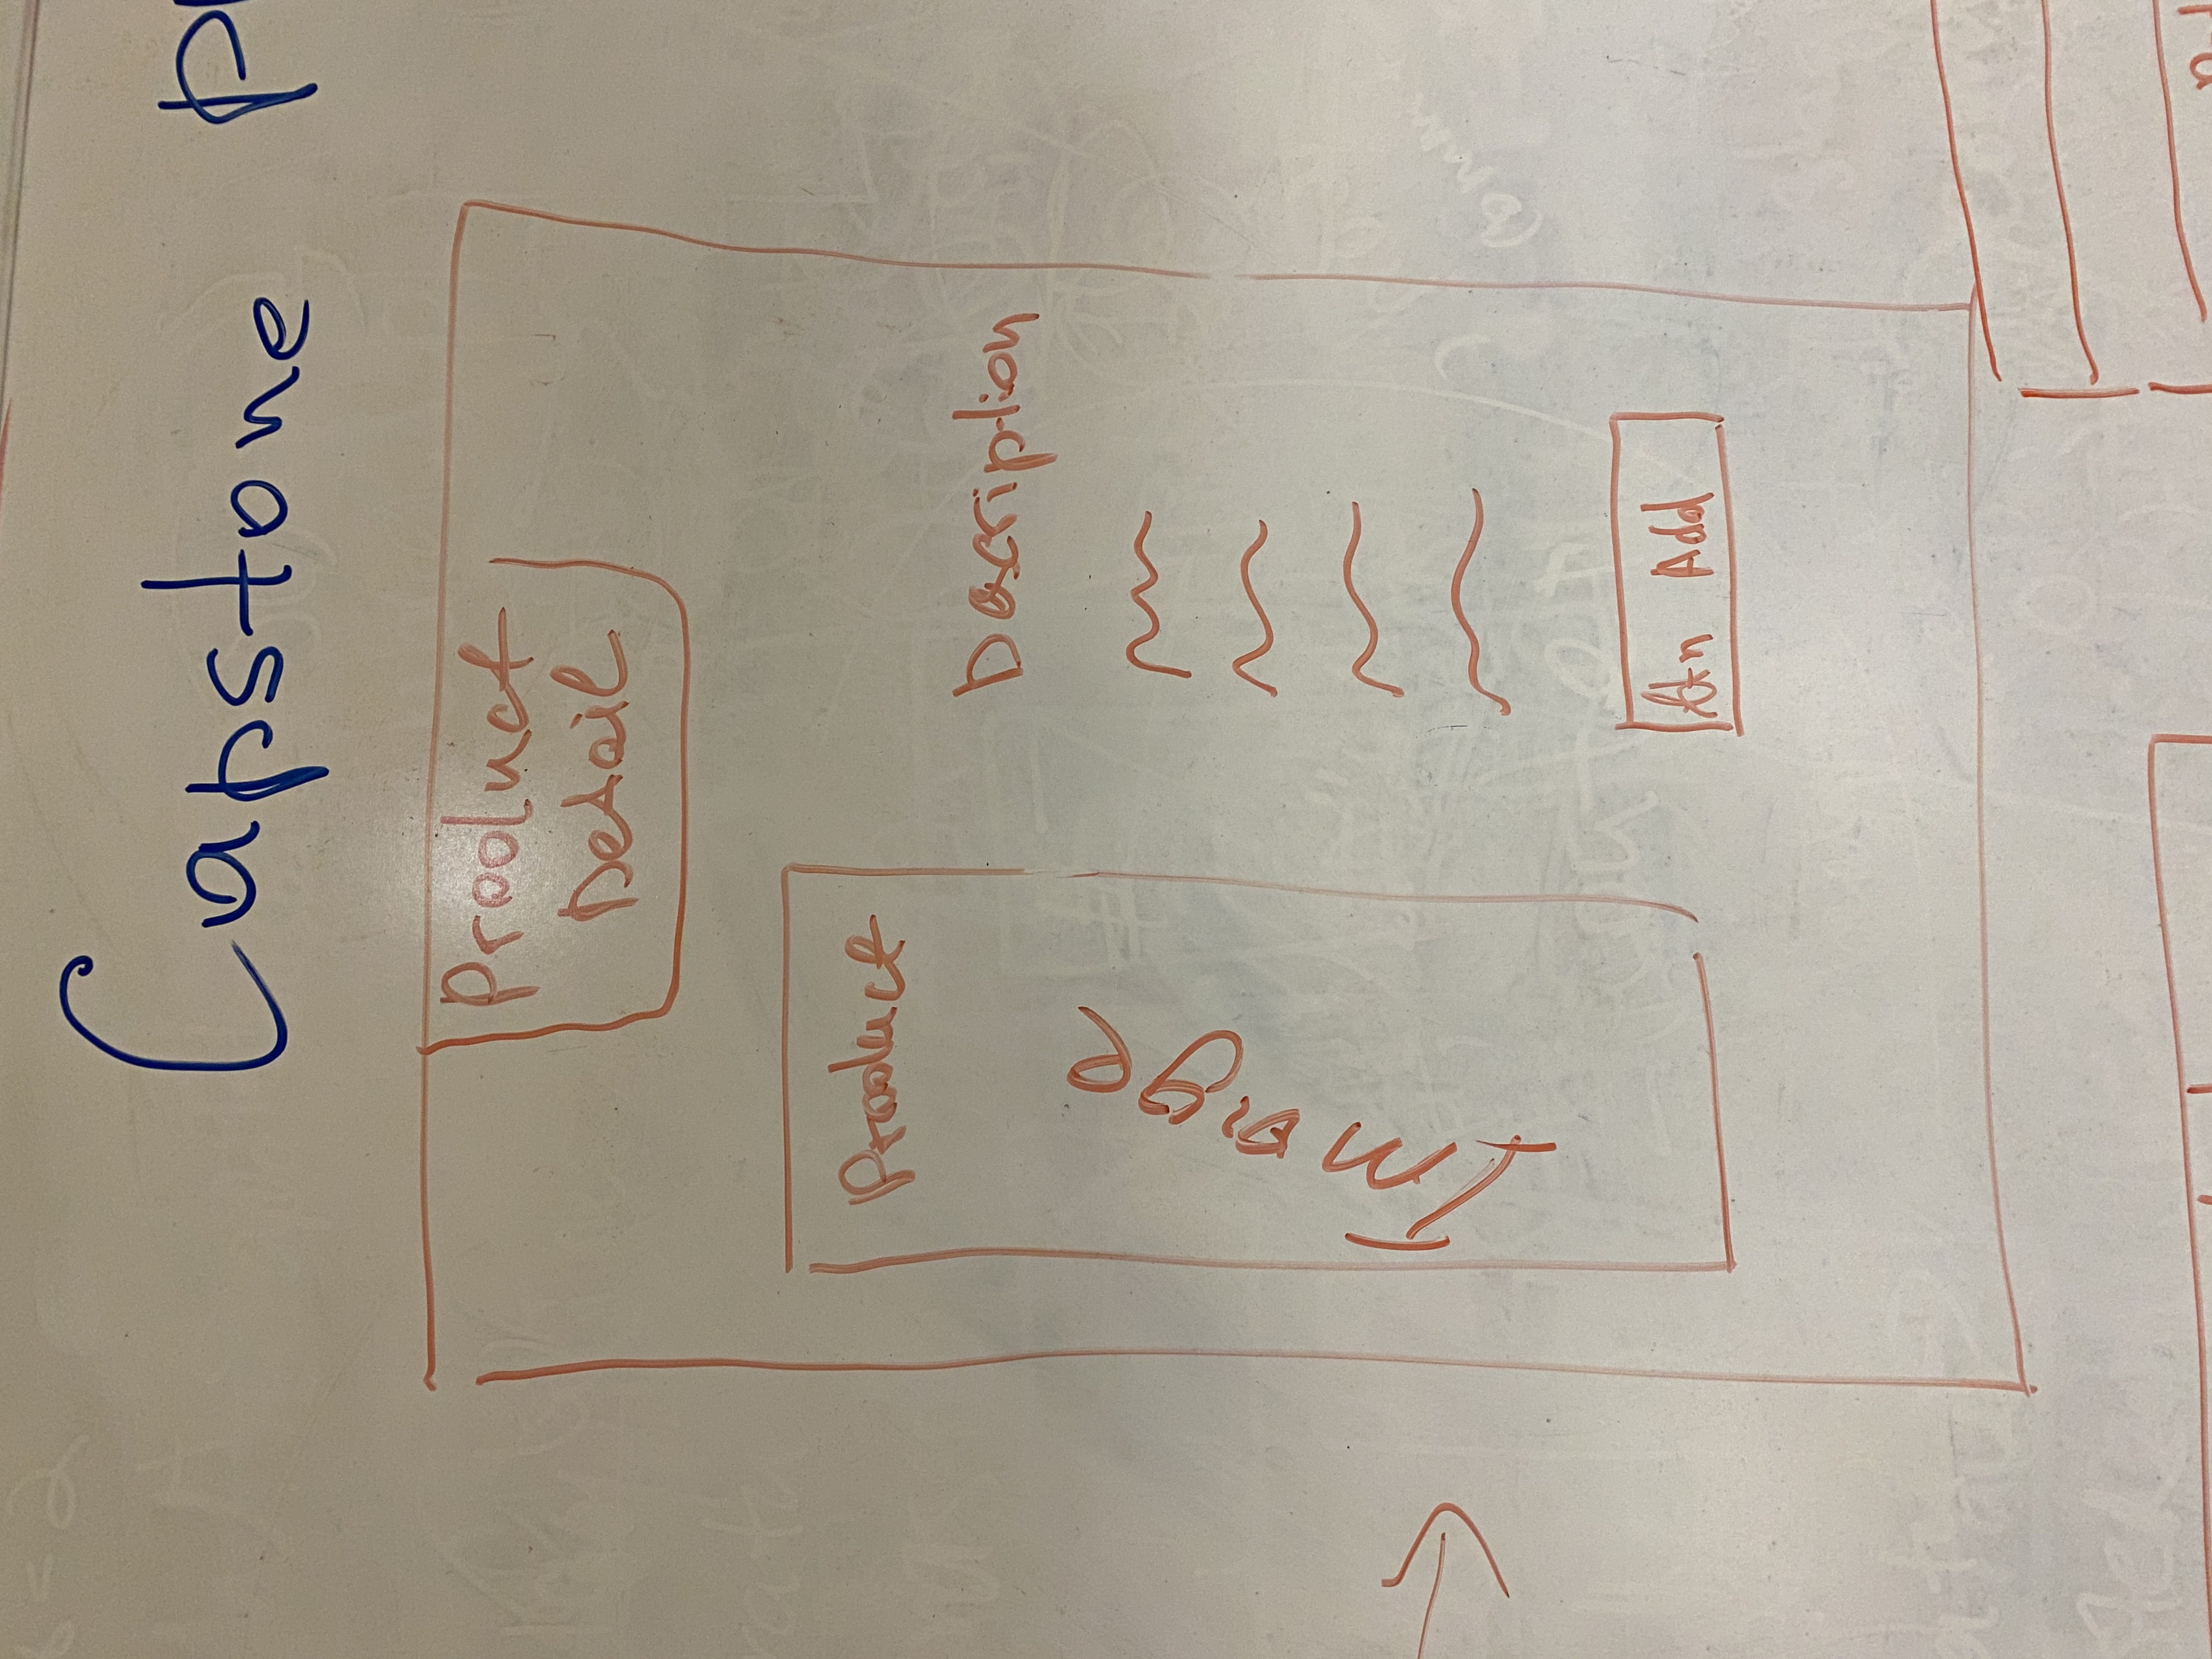 Capstone
Product
Detail
Product
Image
Description
Btn Add